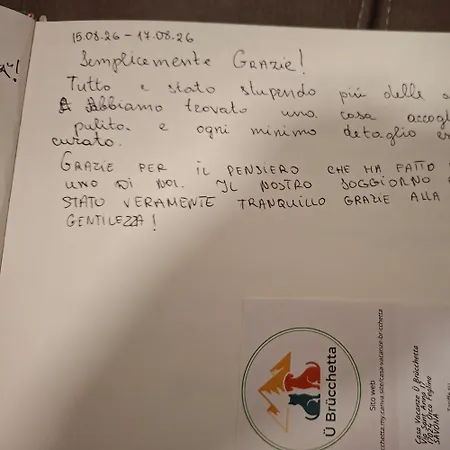 15.08.26 - 17.08.26
Semplicemente GRAZIE!
Tutto e stato stupendo più delle
Abbiamo trovato una casa
pulita e ogni minimo detaglio
curato.
GRAZIE PER IL PENSIERO CHE HA FATTO
UNO DI NOI. IL NOSTRO SOGGIORNO
STATO VERAMENTE TRANQUILLO GRAZIE ALLA
GENTILEZZA!
Ü Brücchetta
Sito web
Casa Vacanze Ü Brücchetta
Via Sant'Anna 17
17024 Orco Feglino
SAVONA